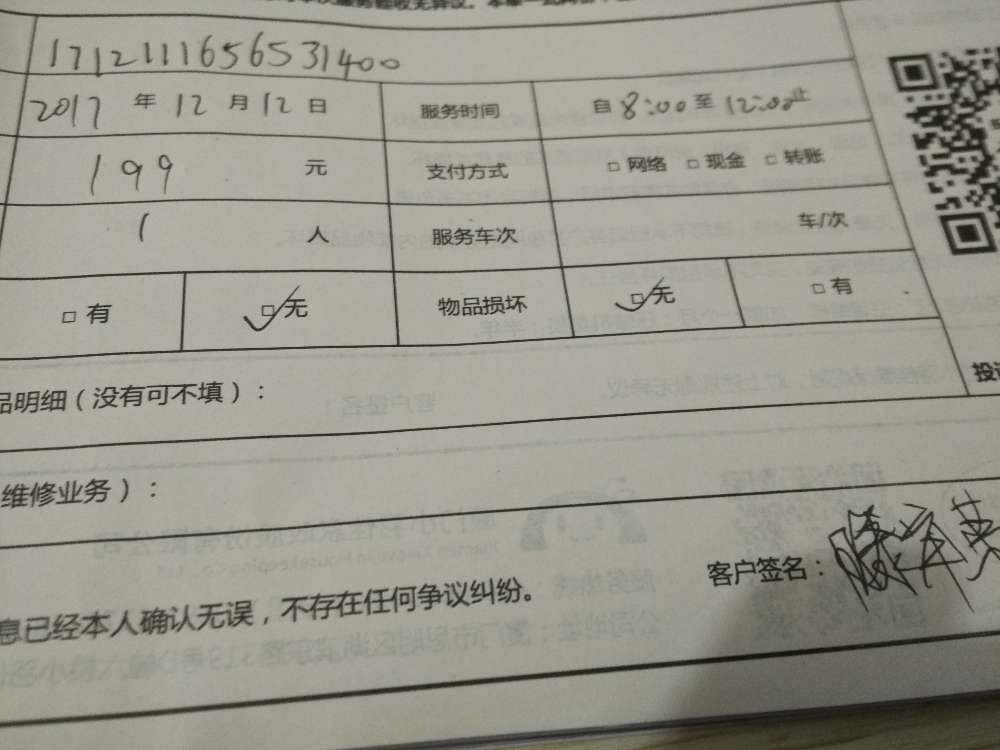 1712111656531400
2017 年 12 月 12 日 服务时间 自 8:00 至 12:00 止
199 元 支付方式 □ 网络 □ 现金 □ 转账
1 人 服务车次 车/次
□ 有 □ 无 物品损坏 □ 无 □ 有
投
品明细（没有可不填）：
维修业务）：
客户签名：
息已经本人确认无误，不存在任何争议纠纷。